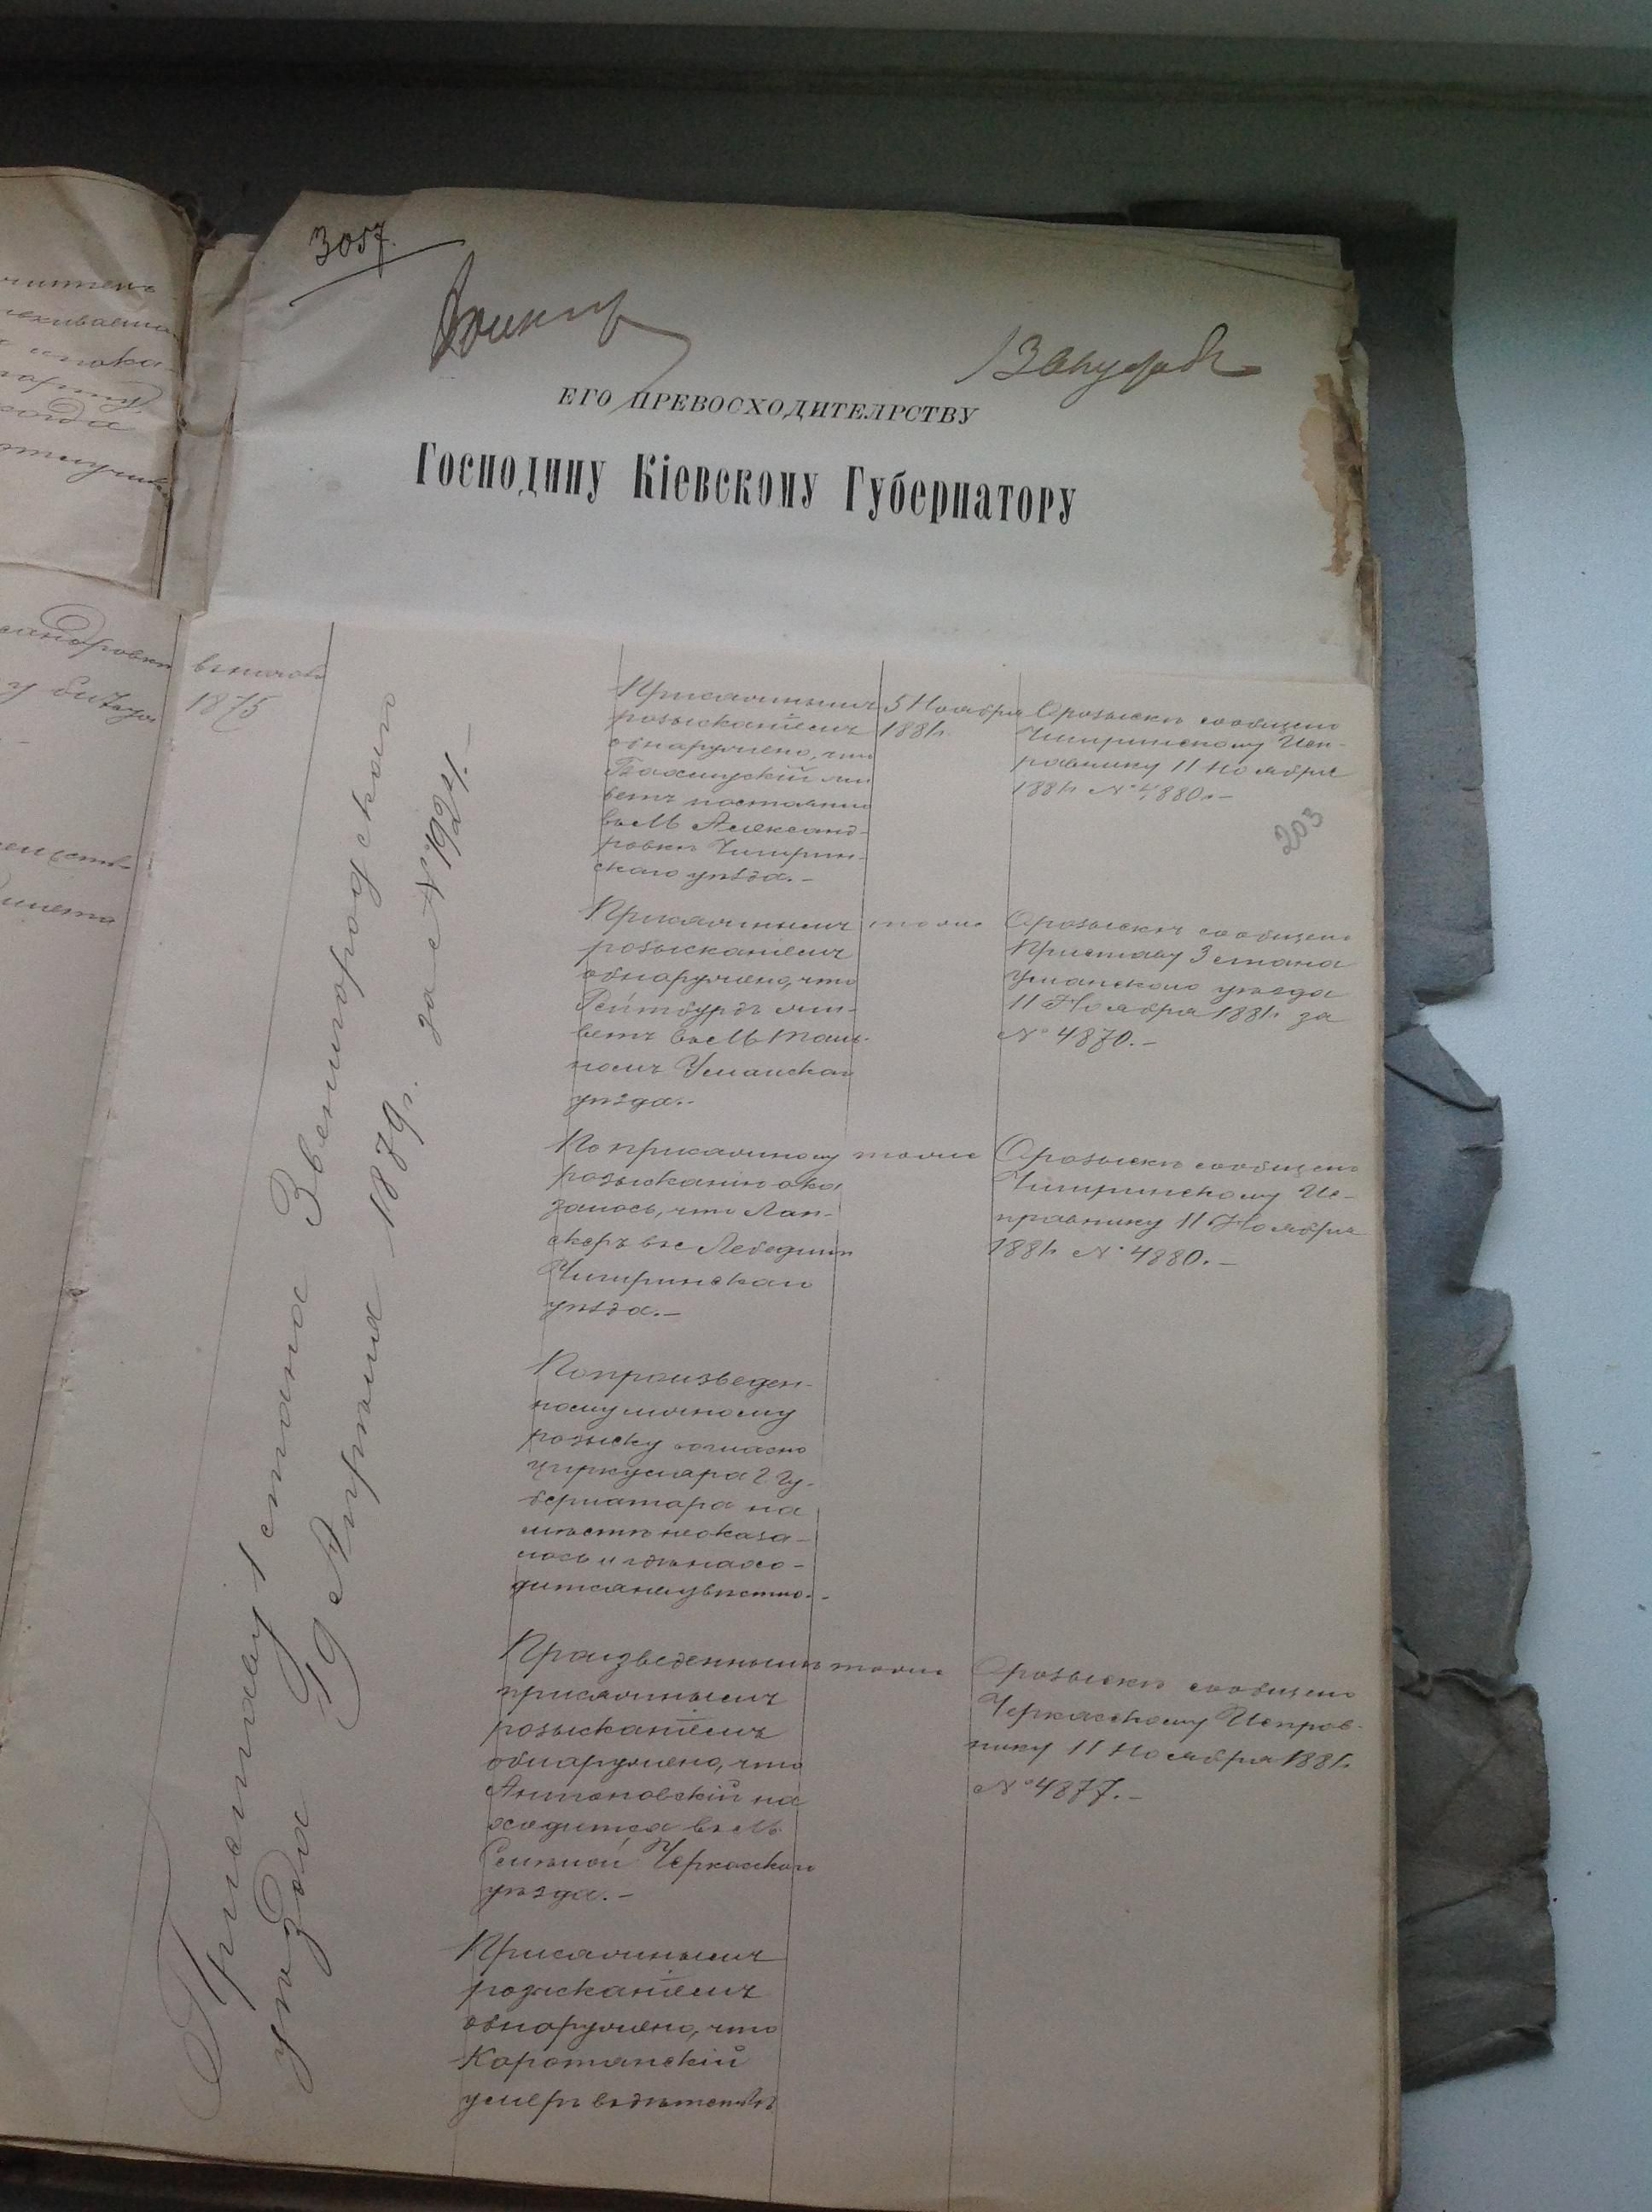 3057.
ЕГО ПРЕВОСХОДИТЕЛЬСТВУ
Господину Кіевскому Губернатору
1875
Приставу 1 стана Звенигородскаго
уѣзда 19 Апрѣля 1879 г. за № 1924.–
Присяжнымъ
розысканіемъ
обнаружено, что
жи
ветъ постоянно
въ М Александ-
ровкѣ Чигирин-
скаго уѣзда.–
5 Ноября
1881 г.
О розыскѣ сообщено
Чигиринскому Исп-
равнику 11 Ноября
1881 г. № 4880.–
203
Присяжнымъ
розысканіемъ
обнаружено, что
Рейтбурдъ жи-
ветъ въ М Таль-
номъ Уманскаго
уѣзда.–
тоже
О розыскѣ сообщено
Приставу 3 стана
Уманскаго уѣзда
11 Ноября 1881 г. за
№ 4870.–
По присяжному
розысканію ока
залось, что Лан-
скеръ въ с Лебединѣ
Чигиринскаго
уѣзда.–
тоже
О розыскѣ сообщено
Чигиринскому Ис-
правнику 11 Ноября
1881 г. № 4880.–
По произведен-
ному личному
розыску согласно
циркуляра Г. Гу-
бернатора на
мѣстѣ не оказа-
лось и гдѣ нахо-
дится неизвѣстно.–
Произведеннымъ
присяжнымъ
розысканіемъ
обнаружено, что
Антоновскій на
ходится въ М.
Смѣлой Черкасскаго
уѣзда.–
тоже
О розыскѣ сообщено
Черкасскому Исправ-
нику 11 Ноября 1881 г.
№ 4877.–
Присяжнымъ
розысканіемъ
обнаружено, что
Коротянскій
умеръ въ дѣтствѣ